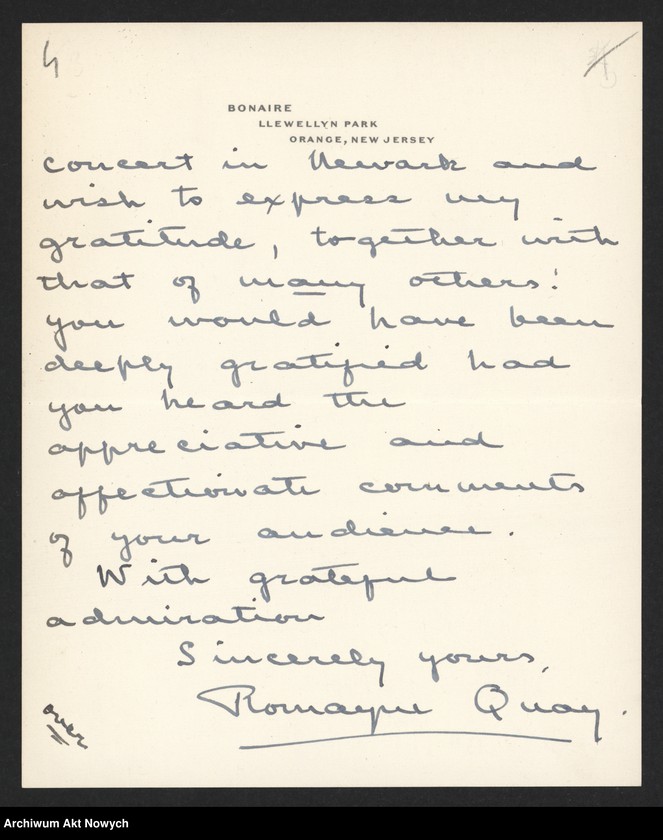 4
BONAIRE
LLEWELLYN PARK
ORANGE, NEW JERSEY
concert in Newark and
wish to express my
gratitude, together with
that of many others!
you would have been
deeply gratified had
you heard the
appreciative and
affectionate comments
of your audience.
With grateful
admiration
Sincerely yours,
Romayne Quay.
over
Archiwum Akt Nowych